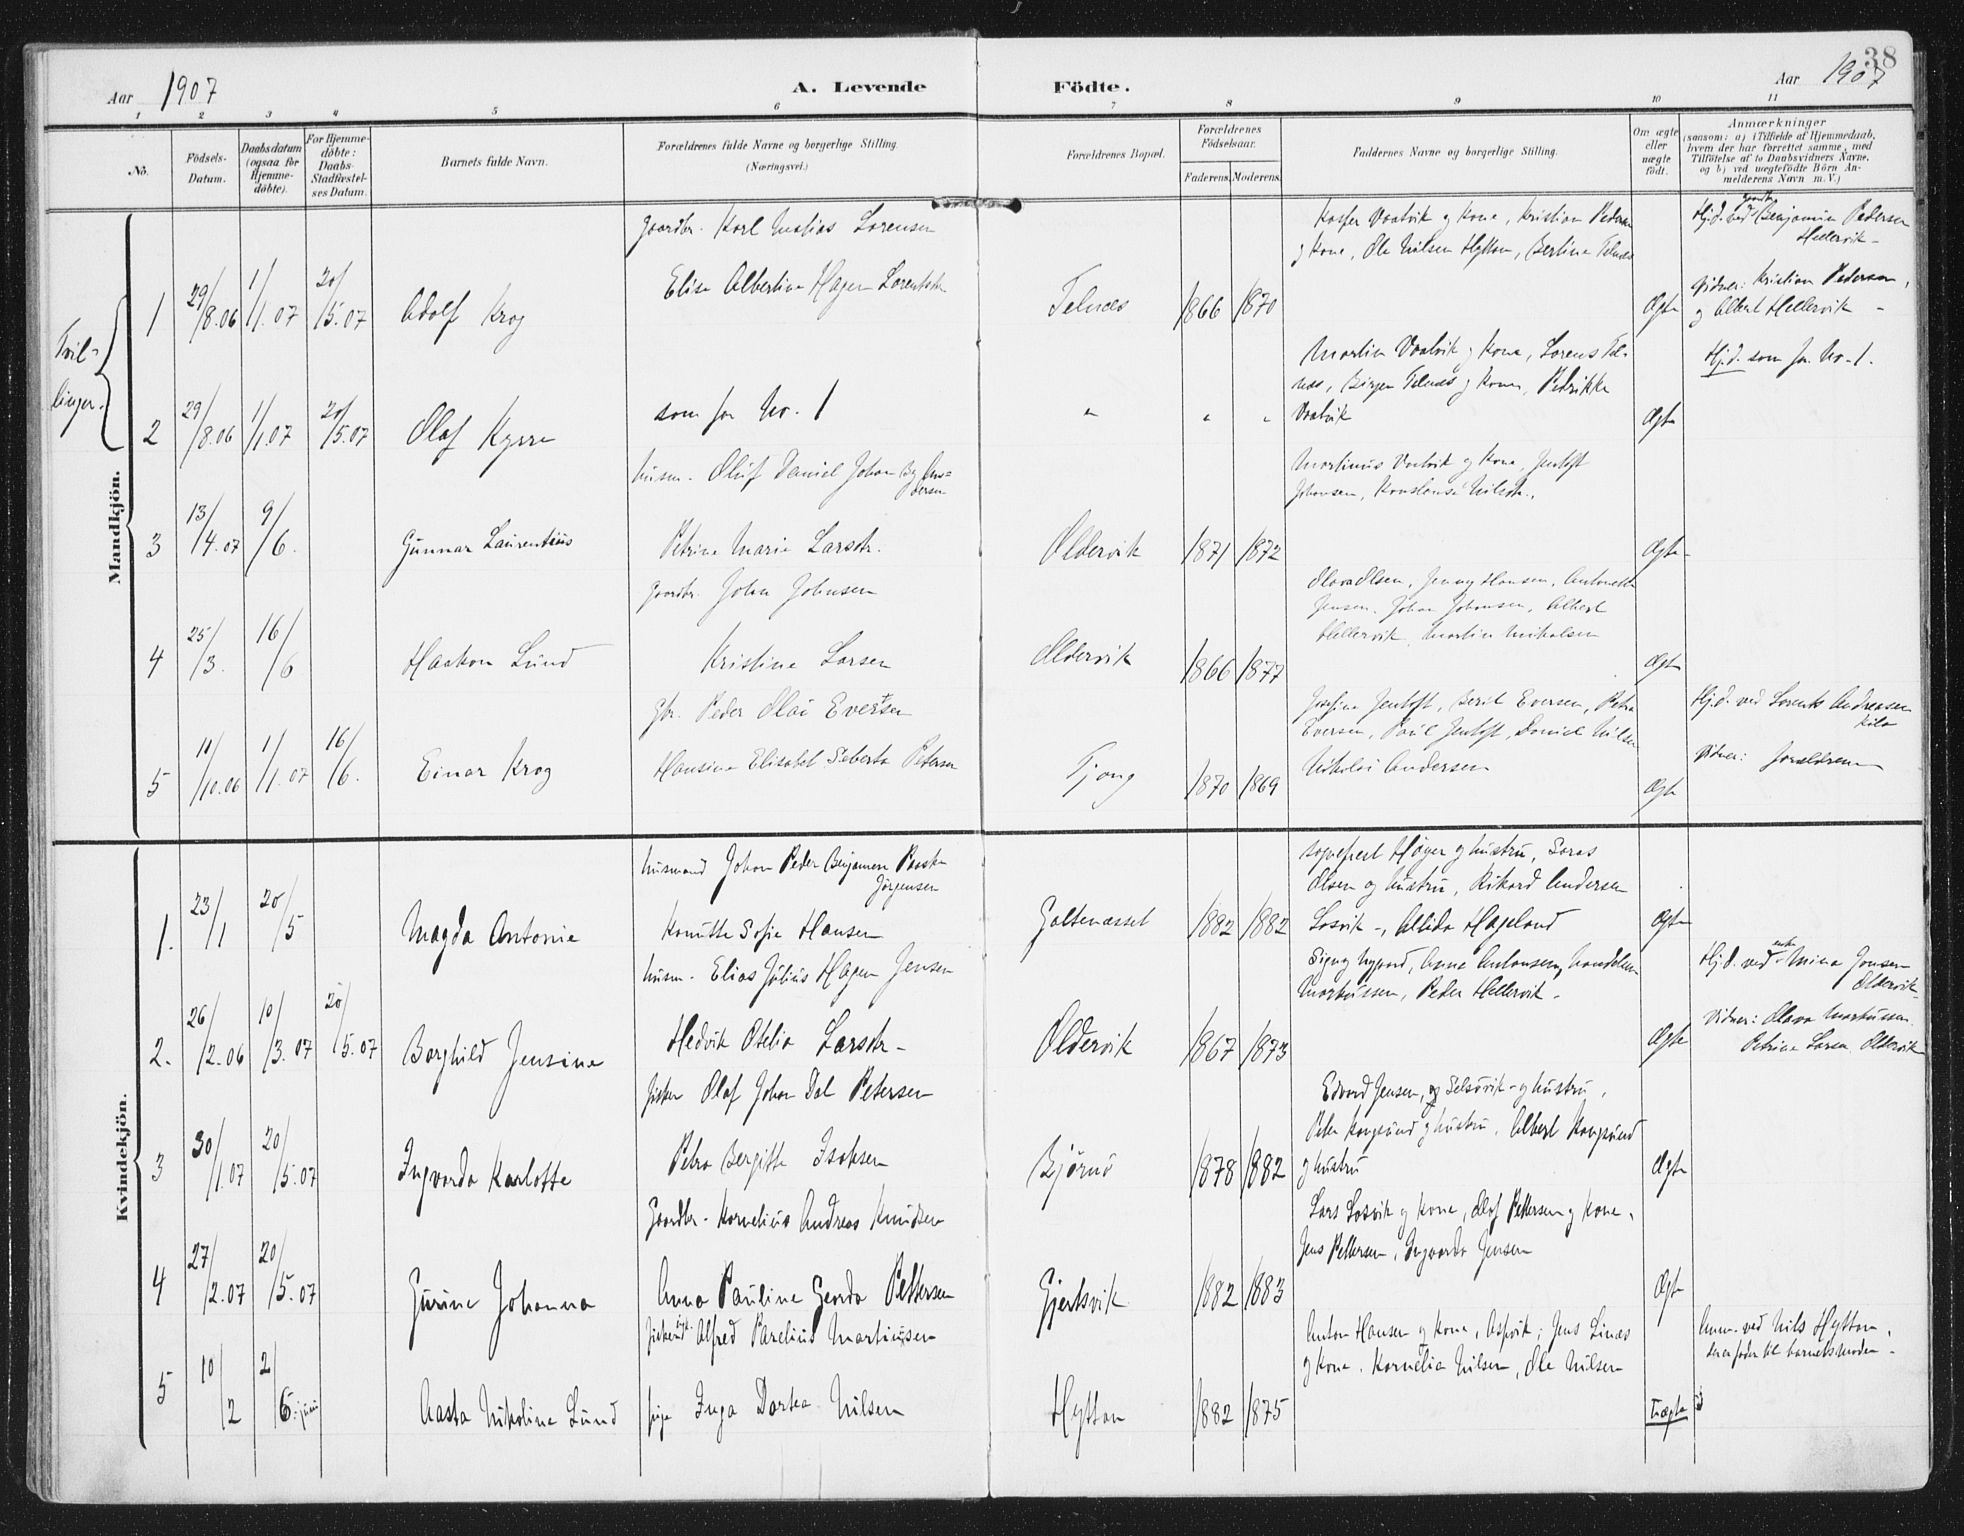 38
Aar 1907
A. Levende Födte.
Aar 1907
1 2 3 4 5 6 7 8 9 10 11
No.
Födsels-Datum.
Daabsdatum (ogsaa for Hjemme-döbte).
For Hjemme-döbte: Daabs-Stadfæstel-ses Datum.
Barnets fulde Navn.
Forældrenes fulde Navne og borgerlige Stilling.
(Næringsvei.)
Forældrenes Bopæl.
Forældrenes Födselsaar.
Faderens. Moderens.
Faddernes Navne og borgerlige Stilling.
Om ægte eller uægte födt.
Anmærkninger
(saasom: a) i Tilfælde af Hjemmedaab,
hvem der har forrettet samme, med
Tilföielse af to Daabsvidners Navne,
og b) ved uægtefödte Börn An-
melderens Navn m. V.)
Mandkjön.
Tvil-
linger.
gaardbr. Karl Matias Lorensen
Kasper Vaatvik og Kone, Kristian Pedersen
Hj.d. ved Benjamin Pedersen
og Kone, Ole Nilsen Hytten, Berline Telnes
Hellervik -
Elise Albertine Hagen Lorentsdtr
1 29/8.06 1/1.07 20/5.07 Adolf Krog Telnes 1866 1870 Ægte
Vidner: Kristian Pedersen,
og Albert Hellervik -
Martin Vaatvik og Kone, Lorens Tel-
Hj.d. som for No. 1.
næs, Birger Telnæs og Kone, Pedrikke
2 29/8.06 1/1.07 20/5.07 Olaf Kyrre som for No. 1 " " " Vaatvik Ægte
husm. Oluf Daniel Johan By An-
dersen
Martinus Vaatvik og Kone, Jentoft
Johansen, Konstanse Nilsdr.
3 13/4.07 9/6. Gunnar Laurentius Petrine Marie Larsdtr. Oldervik 1871 1872 Ægte
gaardbr. John Johnsen
Olava Olsen, Jenny Hansen, Antonette
Jensen, Johan Johansen, Albert
Hellervik, Martin Mikalsen
4 25/3. 16/6 Haakon Lund Kristine Larsen Oldervik 1866 1877 Ægte
gbr. Peder Olai Evertsen
Josefine Jentoft, Berit Eversen, Petra
Hj.d. ved Lorents Andreasen
Kila
Eversen, Paul Jentoft, Daniel Nilsen
5 11/10.06 1/1.07 16/6. Einar Krog Hansine Elisabet Seberta Petersen Tjong 1870 1869 Nikolai Andersen Ægte
Vidner: forældrene
Kvindekjön.
husmand Johan Peder Benjamin Paaske
Jørgensen
sogneprest Høyer og hustru, Saras
Olsen og hustru, Rikard Andersen
1. 23/1 20/5 Magda Antonie Kanutte Sofie Hansen Galtenæsset 1882 1882 Losvik -, Alida Hageland Ægte
husm. Elias Julius Hagen Jensen
Signy Nygaard, Anna Antonsen,
Hj.d. ved enke Mina Jonsen
Oldervik
Markussen, Peder Hellervik -
2. 26/12.06 10/3.07 20/5.07 Borghild Jensine Hedvik Otelia Larsdtr - Oldervik 1867 1873 Ægte
Vidner: Olava Markussen
Petrine Larsen Oldervik
fisker Olaf Johan Dal Petersen
Edvard Jensen, Selsøvik - og hustru,
Peder Kangsund og hustru, Albert Kangsund
3 30/1.07 20/5.07 Ingvarda Karlotte Petra Bergitte Isaksen Bjørnø 1878 1882 og hustru Ægte
Gaardbr. Kornelius Andreas Knudsen
Lars Losvik og Kone, Olaf Pettersen og Kone,
Jens Pettersen, Ingvarda Jensen
4 27/2.07 20/5.07 Gurine Johanna Anna Pauline Gerda Pettersen Gjertsvik 1882 1883 Ægte
fisker Alfred Parelius Martiusen
Anton Hansen og Kone, Aspvik; Jens Linæs
og Kone, Kornelia Nilsen, Ole Nilsen
Anm. ved Nils Hytten,
der er fader til barnets moder -
5 10/2 2/6. juni Aasta Nikoline Lund pige Inga Dortea Nilsen Hytten 1882 1875 Uægte